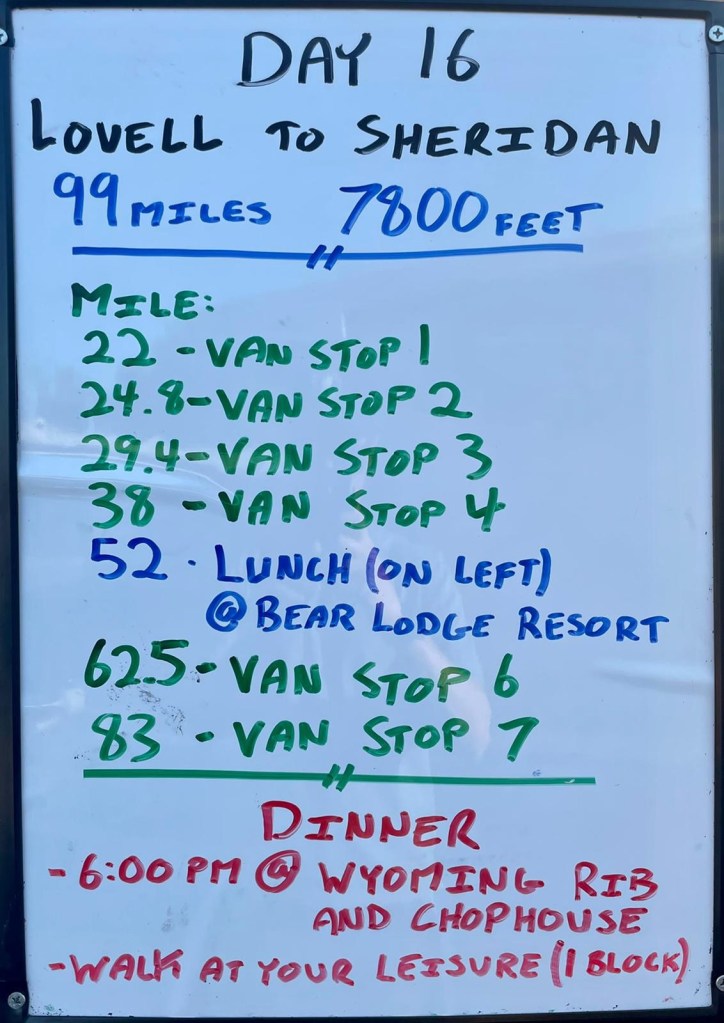 DAY 16
LOVELL TO SHERIDAN
99 MILES 7800 FEET
MILE:
22 - VAN STOP 1
24.8 - VAN STOP 2
29.4 - VAN STOP 3
38 - VAN STOP 4
52 - LUNCH (ON LEFT)
@ BEAR LODGE RESORT
62.5 - VAN STOP 6
83 - VAN STOP 7
DINNER
- 6:00 PM @ WYOMING RIB
AND CHOPHOUSE
- WALK AT YOUR LEISURE (1 BLOCK)